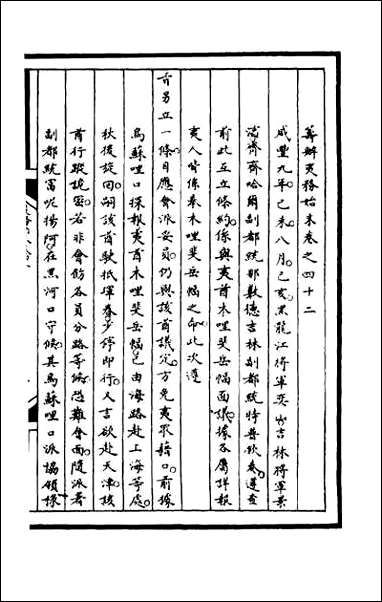 籌辦夷務始末卷之四十二
咸豐九年己未八月己亥黑龍江將軍奕山吉林將軍景
淳齊齊哈爾副都統那敷德吉林副都統特普欽奏遵查
前此互立條約係與夷酋木哩斐岳幅面議據各屬詳報
夷人皆係奉木哩斐岳幅之命此次遵
旨另立一條自應會派妥員仍與該酋議定方免夷衆藉口前據
烏蘇哩口探報夷酋木哩斐岳幅已由海路赴上海等處
秋後旋回嗣該酋駛抵琿春少停即行又言欲赴天津該
酋行蹤詭密若非會飭各員分路等候恐難會面隨派署
副都統富呢揚阿在黑河口守候其烏蘇哩口派協領祿